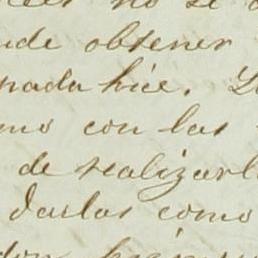 no se
obtener
nada hice.
mo con las
de realizarl
darlas como